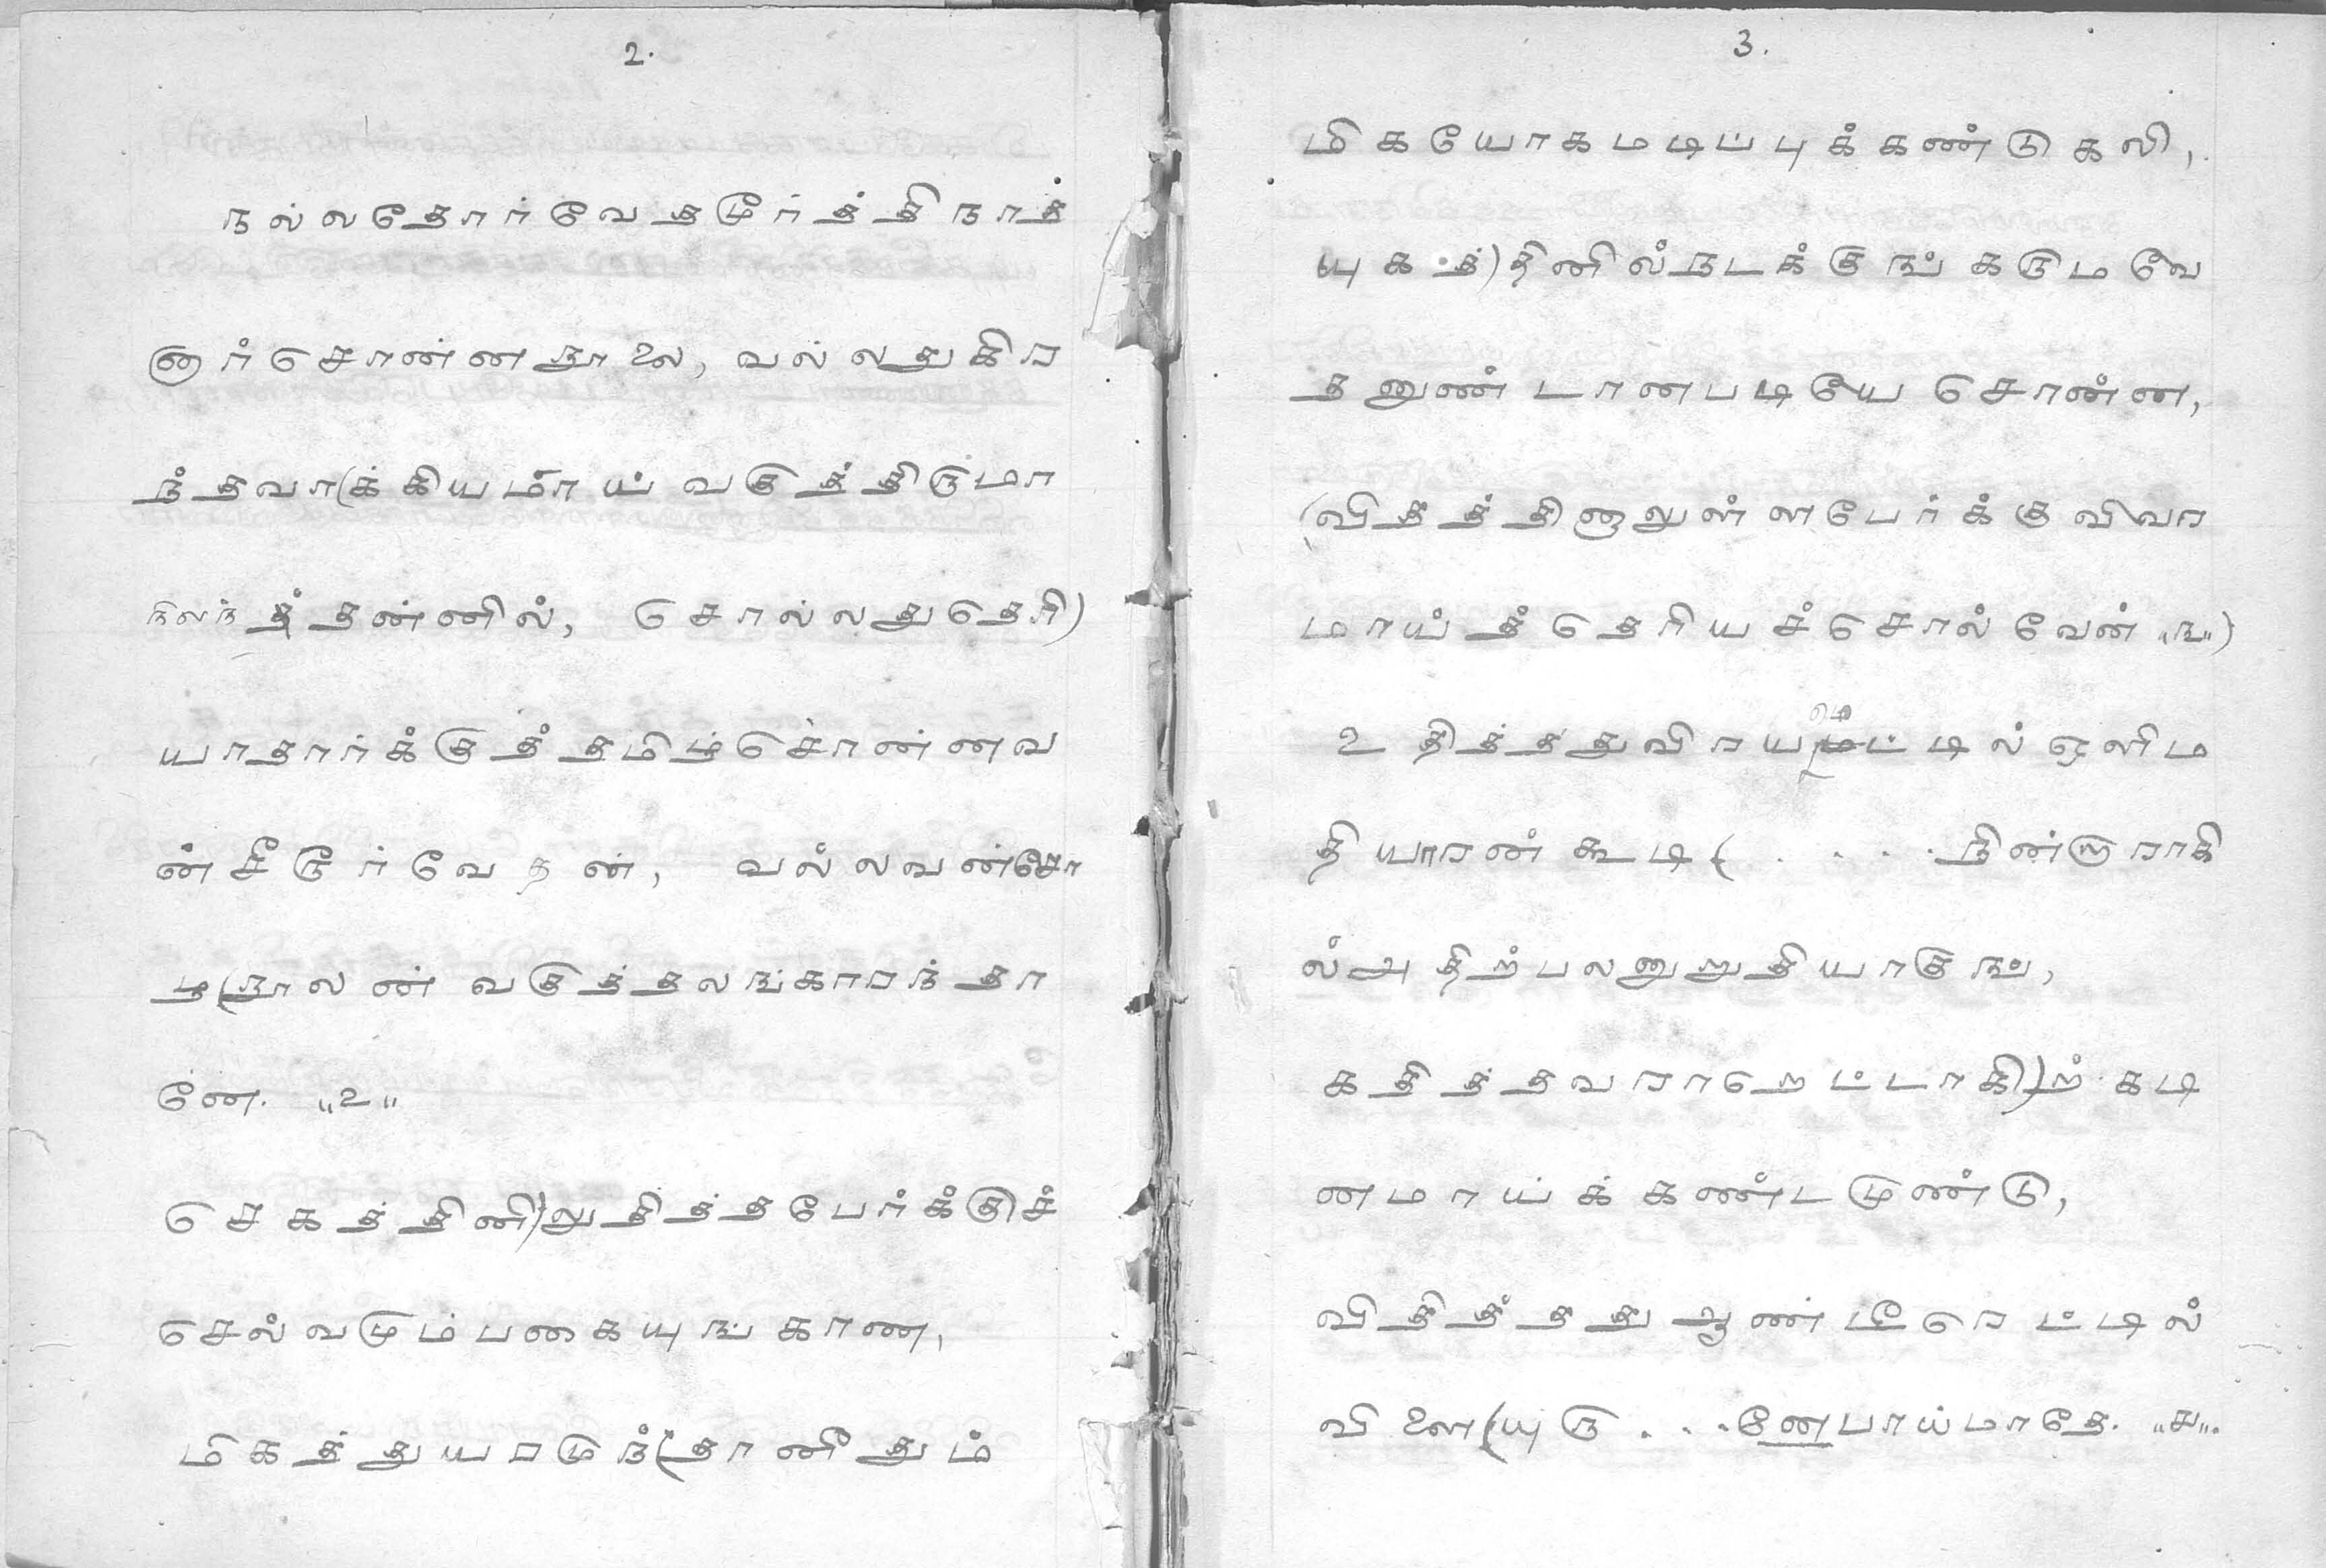 2.
நல்லதோர் வேதமூர்த்தி நாத
னார் சொன்ன நூலை, வல்லது கிர
ந்தவா(க்கியமாய் வகுத்திருமா
நிலந் தன்னில், சொல்லது தெரி)
யாதார்க்குத் தமிழ்சொன்னவ
ன் சீரூர் வேதன், வல்லவன் சோ
டி(நூலன் வகுத்தலங்காரந் தா
னே. "௨"
செகத்தினி)லுதித்த பேர்க்குச்
செல்வமும் பகையுங் காண,
மிகத்துயரமுந் (தானீதும்
3.
மிகயோகமடிப்புக் கண்டு கலி,
யுகத்)தினில் நடக்குங் கருமவே
தனுண்டானபடியே சொன்ன,
(வித்தத்தினாலுள்ள பேர்க்கு விவர
மாய்த் தெரியச் சொல்வேன் "௩")
உதித்தது விரயமெட்டில் ஒளிம
தியாரன் கூடி ( . . . . நின்றுராகி
ல் அதிற்பலனுறுதியாகுங,
கதித்தவராறெட்டாகி)ற் கடி
னமாய்க் கண்டமுண்டு,
விதித்தது ஆண்டீரெட்டில்
விளை(யு)ரு . . . னேபாய்மாதே. "௪".